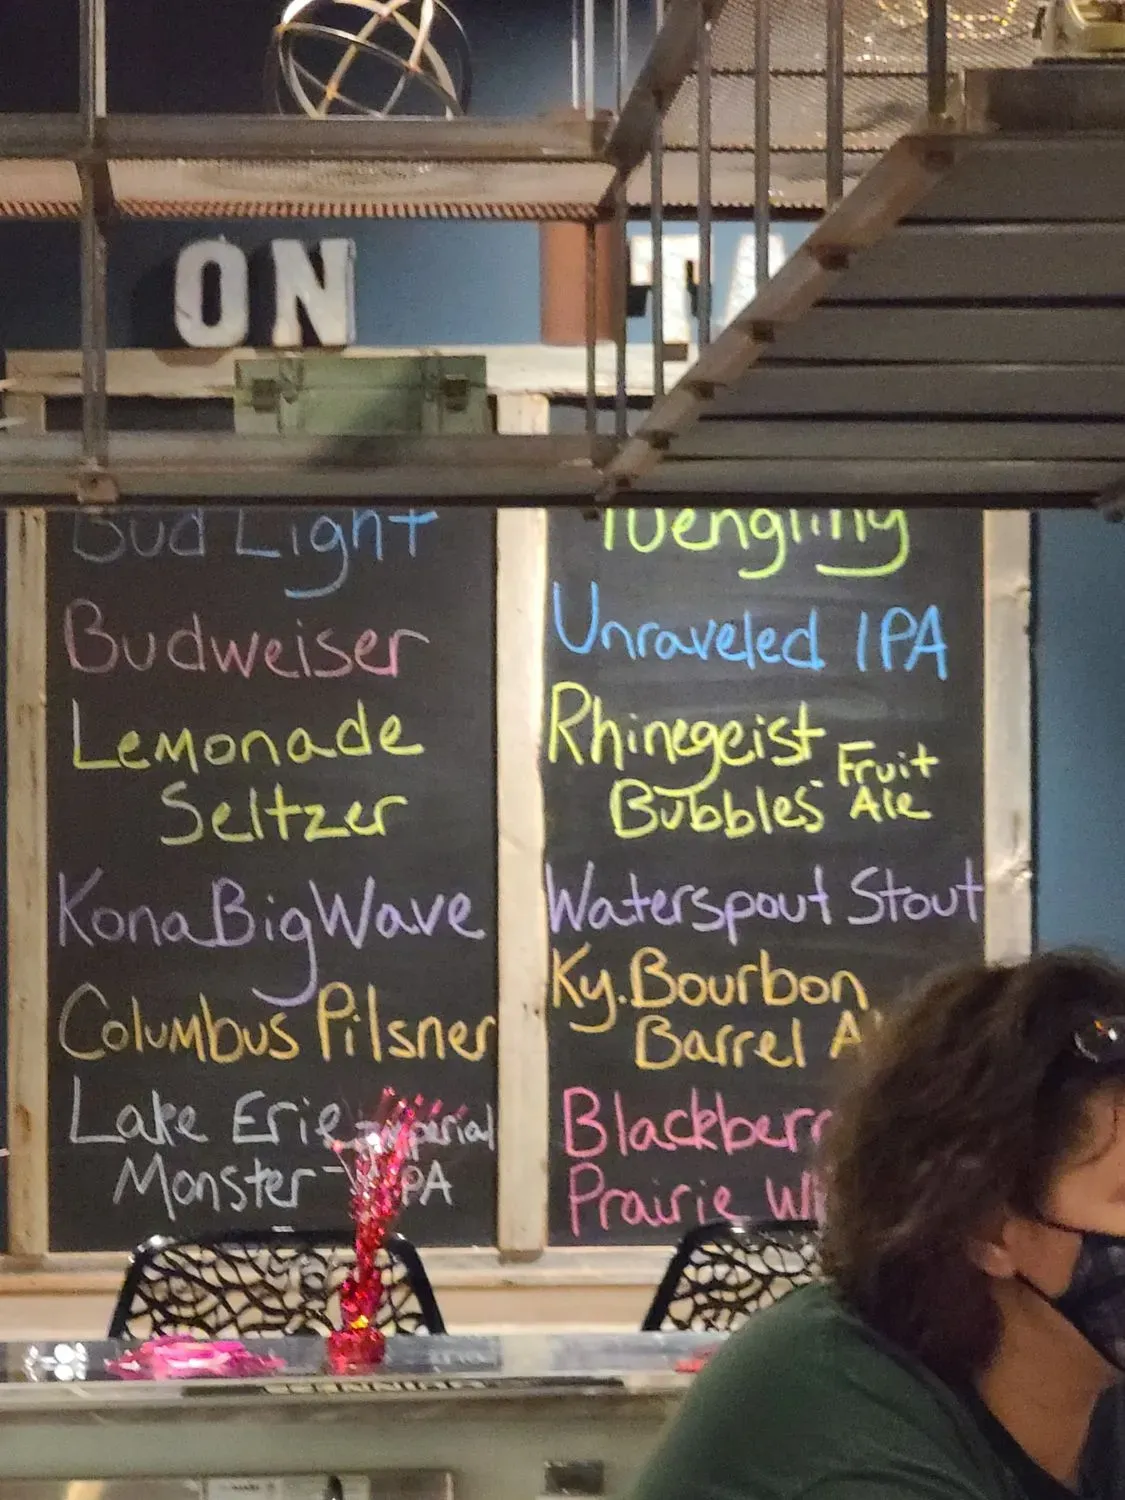 ON TA
Bud Light
Budweiser
Lemonade
Seltzer
Kona Big Wave
Columbus Pilsner
Lake Erie Imperial
Monster IPA
Yuengling
Unraveled IPA
Rhinegeist Fruit
Bubbles Ale
Waterspout Stout
Ky. Bourbon
Barrel A
Blackberr
Prairie Wh